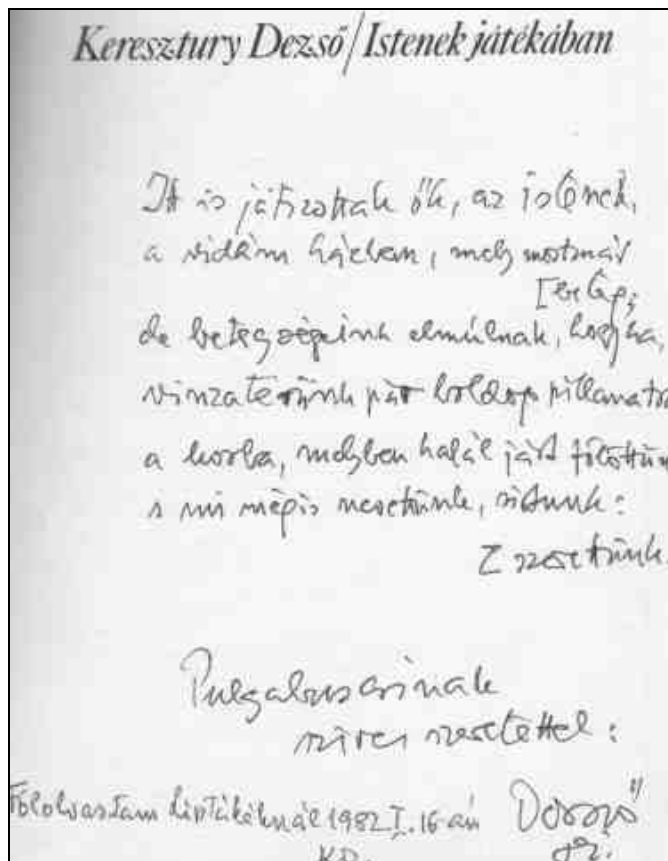 Keresztury Dezső/Istenek játékában
Itt is játszottak ők, az istenek,
a vidám házban, mely mostmár
[beteg;
de betegségeink elmúlnak, hogyha,
visszatérünk pár boldog pillanatra
a korba, melyben halál járt fölöttünk
s mi mégis nevettünk, sírtunk:
[szerettünk.
szives szeretettel:
Fölolvastam Liptákéknál 1982 I. 16-án Dezső
KD.